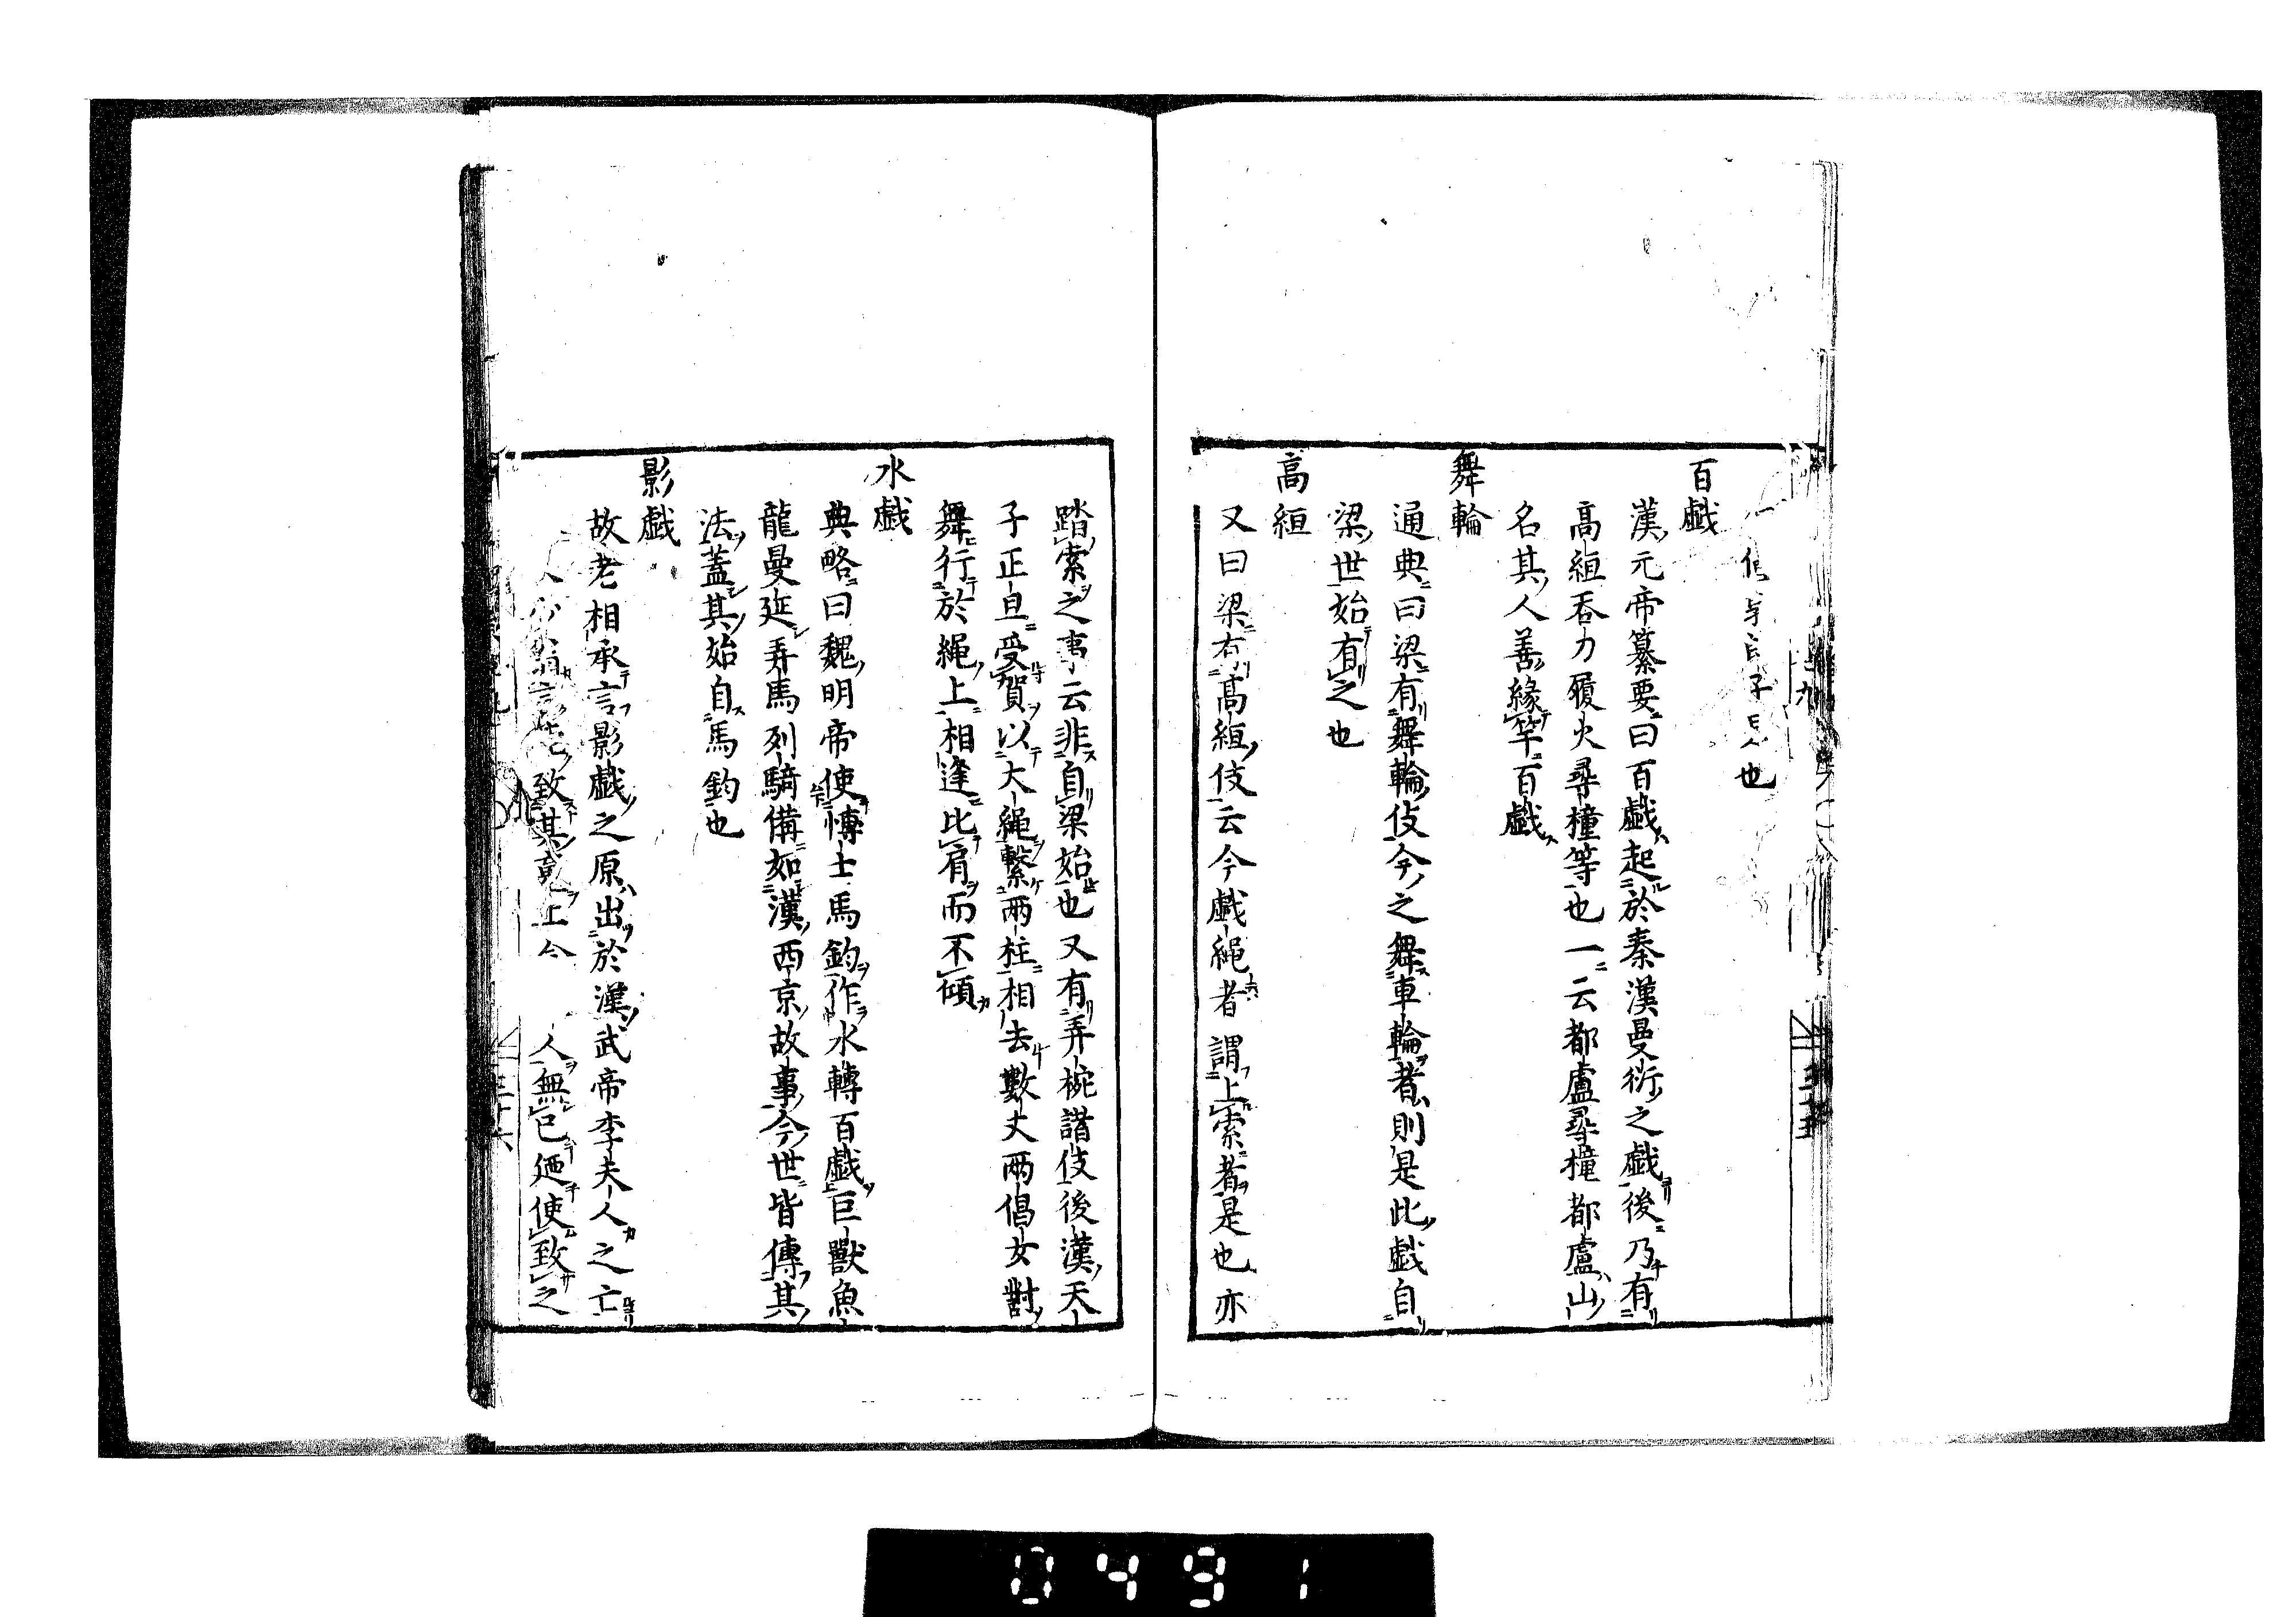 子 也
百戯
漢元帝纂要曰百戯起於秦漢曼衍之戯後乃有
高絙吞刀履火尋橦等也一云都盧尋橦都盧山
名其人善緣竿百戯
舞輪
通典曰梁有舞輪伎今之舞車輪者則是此戯自
梁世始有之也
高絙
又曰梁有高絙伎云今戯繩者謂上索者是也亦
踏索之事云非自梁始也又有弄椀諸伎後漢天
子正旦受賀以大繩繫兩柱相去數丈兩倡女對
舞行於繩上相逢比肩而不傾
水戯
典略曰魏明帝使愽士馬鈞作水轉百戯巨獸魚
龍曼延弄馬列騎備如漢西京故事今世皆傳其
法蓋其始自馬鈞也
影戯
故老相承言影戯之原出於漢武帝李夫人之亡
致其 上 人無已廼使致之
三十六
0491